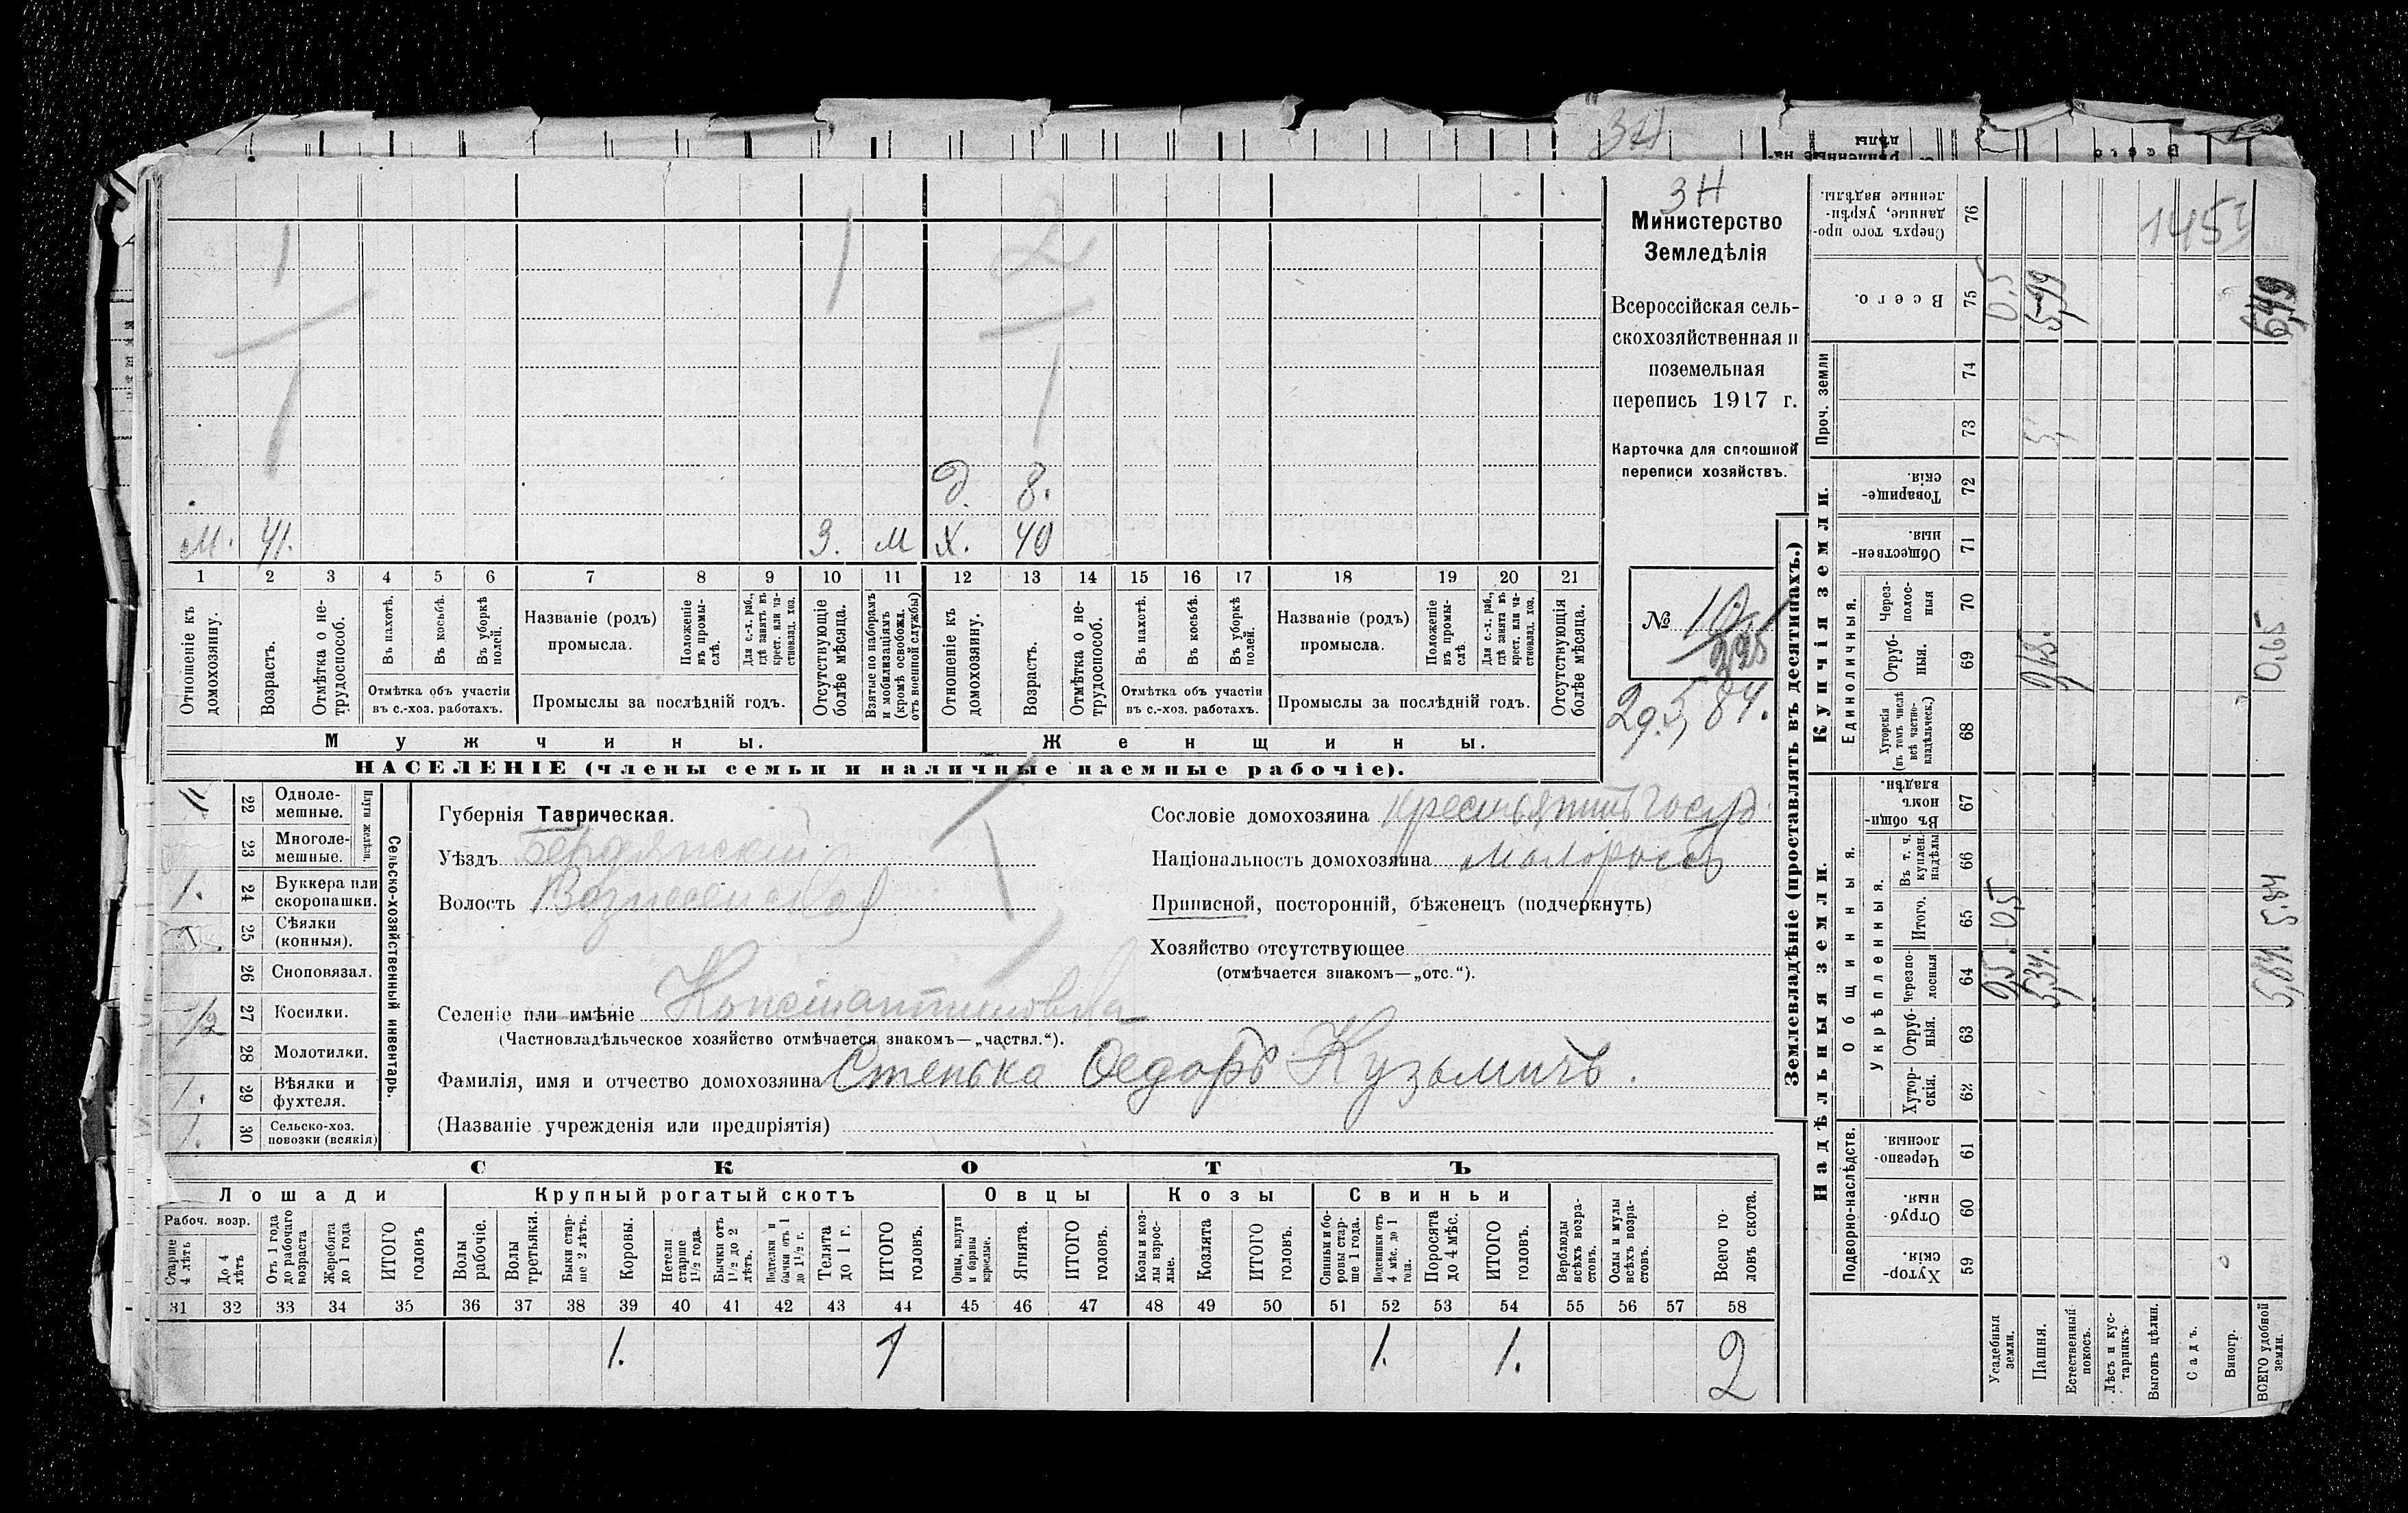 ЗН
Министерство
Земледѣлія
Всероссійская сель-
скохозяйственная и
поземельная
перепись 1917 г.
Карточка для сплошной
переписи хозяйствъ.
№ 10
295
29. 5,84.
Д. 8.
М. 41. З. М Х. 40
1 2 3 4 5 6 7 8 9 10 11 12 13 14 15 16 17 18 19 20 21
Отношеніе къ домохозяину.
Возрастъ.
Отмѣтка о не-трудоспособ.
Въ пахотѣ.
Въ косьбѣ.
Въ уборкѣ полей.
Отмѣтка объ участіи
въ с.-хоз. работахъ.
Названіе (родъ)
промысла.
Положеніе въ промы-слѣ.
Для с.-х. раб., гдѣ занятъ въ крест. или ча-стновлад. хоз.
Промыслы за послѣдній годъ.
Отсутствующіе болѣе мѣсяца.
Взятые по наборамъ и мобилизаціямъ (кромѣ освобожд. отъ военной службы)
Отношеніе къ домохозяину.
Возрастъ.
Отмѣтка о не-трудоспособ.
Въ пахотѣ.
Въ косьбѣ.
Въ уборкѣ полей.
Отмѣтка объ участіи
въ с.-хоз. работахъ.
Названіе (родъ)
промысла.
Положеніе въ промы-слѣ.
Для с.-х. раб., гдѣ занята въ крест. или ча-стновлад. хоз.
Промыслы за послѣдній годъ.
Отсутствующія болѣе мѣсяца.
Мужчины. Женщины.
НАСЕЛЕНІЕ (члены семьи и наличные наемные рабочіе).
22 Одноле-мешные.
23 Многоле-мешные.
Плуги желѣзн.
1. 24 Буккера или скоропашки.
25 Сѣялки (конныя).
26 Сноповязал.
1/2 27 Косилки.
28 Молотилки.
1. 29 Вѣялки и фухтеля.
1. 30 Сельско-хоз. повозки (всякія)
Сельско-хозяйственный инвентарь.
Губернія Таврическая.
Уѣздъ Бердянскій
Волость Вознесенская
Селеніе или имѣніе Константиновка
(Частновладѣльческое хозяйство отмѣчается знакомъ—„частвл.“).
Фамилія, имя и отчество домохозяина Стенька Ѳедоръ Кузьмичъ.
(Названіе учрежденія или предпріятія)
Сословіе домохозяина крестьянинъ госуд.
Національность домохозяина малороссъ
Приписной, посторонній, бѣженецъ (подчеркнуть)
Хозяйство отсутствующее
(отмѣчается знакомъ—„отс.“).
СКОТЪ
Лошади Крупный рогатый скотъ Овцы Козы Свиньи
Рабоч. возр.
Старше 4 лѣтъ
До 4 лѣтъ
Отъ 1 года до рабочаго возраста
Жеребята до 1 года
ИТОГО головъ
Волы рабочіе.
Волы третьяки.
Быки стар-ше 2 лѣтъ.
Коровы.
Нетели старше 1½ года.
Бычки отъ 1½ до 2 лѣтъ.
Подтелки и бычки отъ 1 до 1½ г.
Телята до 1 г.
ИТОГО головъ.
Овцы, валухи и бараны взрослые.
Ягнята.
ИТОГО головъ.
Козы и коз-лы взрос-лые.
Козлята
ИТОГО головъ.
Свиньи и бо-ровы стар-ше 1 года.
Подсвинки отъ 4 мѣс. до 1 года.
Поросята до 4 мѣс.
ИТОГО головъ.
Верблюды всѣхъ возра-стовъ.
Ослы и мулы всѣхъ возра-стовъ.
Всего го-ловъ скота.
31 32 33 34 35 36 37 38 39 40 41 42 43 44 45 46 47 48 49 50 51 52 53 54 55 56 57 58
1. 1 1. 1. 2
Землевладѣніе (проставлять въ десятинахъ.)
Сверхъ того про-данные, укрѣп-ленные надѣлы. 76
Всего. 75 0,5 5,99 6,49
Проч. земли
74
73
Купчія земли.
Товарище-скія 72
Обществен-ныя. 71
Единоличныя.
Через-полос-ныя 70
Отруб-ныя. 69 0,65
Хуторскія (въ томъ числѣ всѣ частно-владѣльческ.) 68
Надѣльныя земли.
Общинныя.
Въ общи-номъ владѣн. 67
Укрѣпленныя.
Въ т. ч. куплен. надѣлы 66
Итого. 65 0,5 5.84
Черезпо-лосныя 64 0,5. 5,34. 5,84.
Отруб-ныя. 63
Хутор-скія. 62
Подворно-наслѣдств.
Черезпо-лосныя. 61
Отруб-ныя. 60
Хутор-скія. 59
Усадебныя земли.
Пашня.
Естественный покосъ.
Лѣсъ и кус-тарникъ.
Выгонъ цѣлин.
Садъ.
Виногр.
ВСЕГО удобной земли.